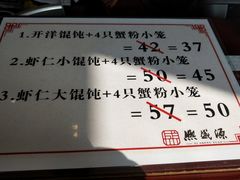 1.开洋馄饨+4只蟹粉小笼
=42=37
2.虾仁小馄饨+4只蟹粉小笼
=50=45
3.虾仁大馄饨+4只蟹粉小笼
=57=50
熙盛源